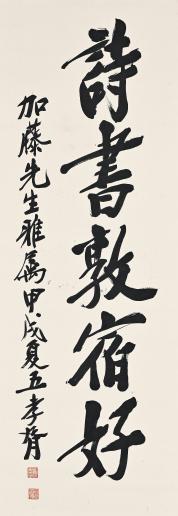 詩書敦宿好
加藤先生雅属甲戌夏五孝胥